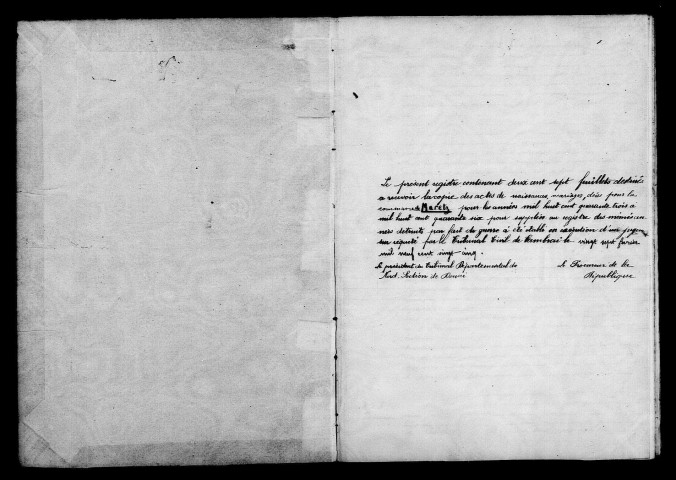 Le présent registre contenant deux cent sept feuillets destiné
à recevoir la copie des actes de naissances, mariages, décès pour la
commune de March pour les années mil huit cent quarante trois à
mil huit cent quarante six pour suppléer au registre des mêmes an
nées détruits par fait de guerre a été établi en exécution d'un juge
sur requête par le Tribunal Civil de Cambrai le vingt sept février
mil neuf cent vingt cinq.
Le président du Tribunal Départemental du
Nord, Section de Douai
le Procureur de la
République